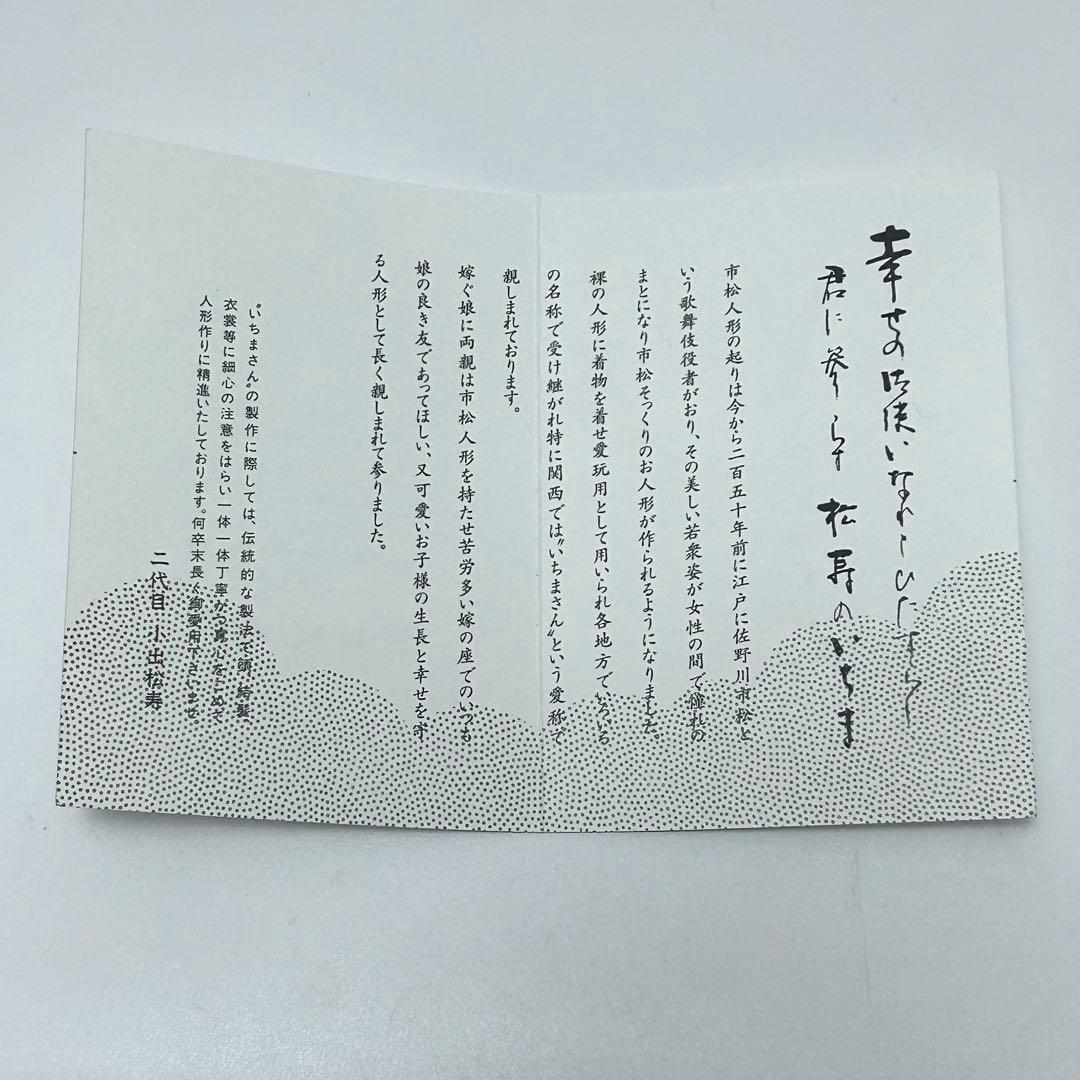 幸せの御使いなれとひたすらに
君に参らす 松寿のいちま
市松人形の起りは今から二百五十年前に江戸に佐野川市松と
いう歌舞伎役者がおり、その美しい若衆姿が女性の間で憧れの
まとになり市松そっくりのお人形が作られるようになりました。
裸の人形に着物を着せ愛玩用として用いられ各地方でいろいろ
の名称で受け継がれ特に関西では〝いちまさん〟という愛称で
親しまれております。
嫁ぐ娘に両親は市松人形を持たせ苦労多い嫁の座でのいつも
娘の良き友であってほしい、又可愛いお子様の生長と幸せを守
る人形として長く親しまれて参りました。
〝いちまさん〟の製作に際しては、伝統的な製法で頭、結髪、
衣裳等に細心の注意をはらい一体一体丁寧かつ真心をこめて
人形作りに精進いたしております。何卒末長く御愛用下さいませ
二代目 小出松寿